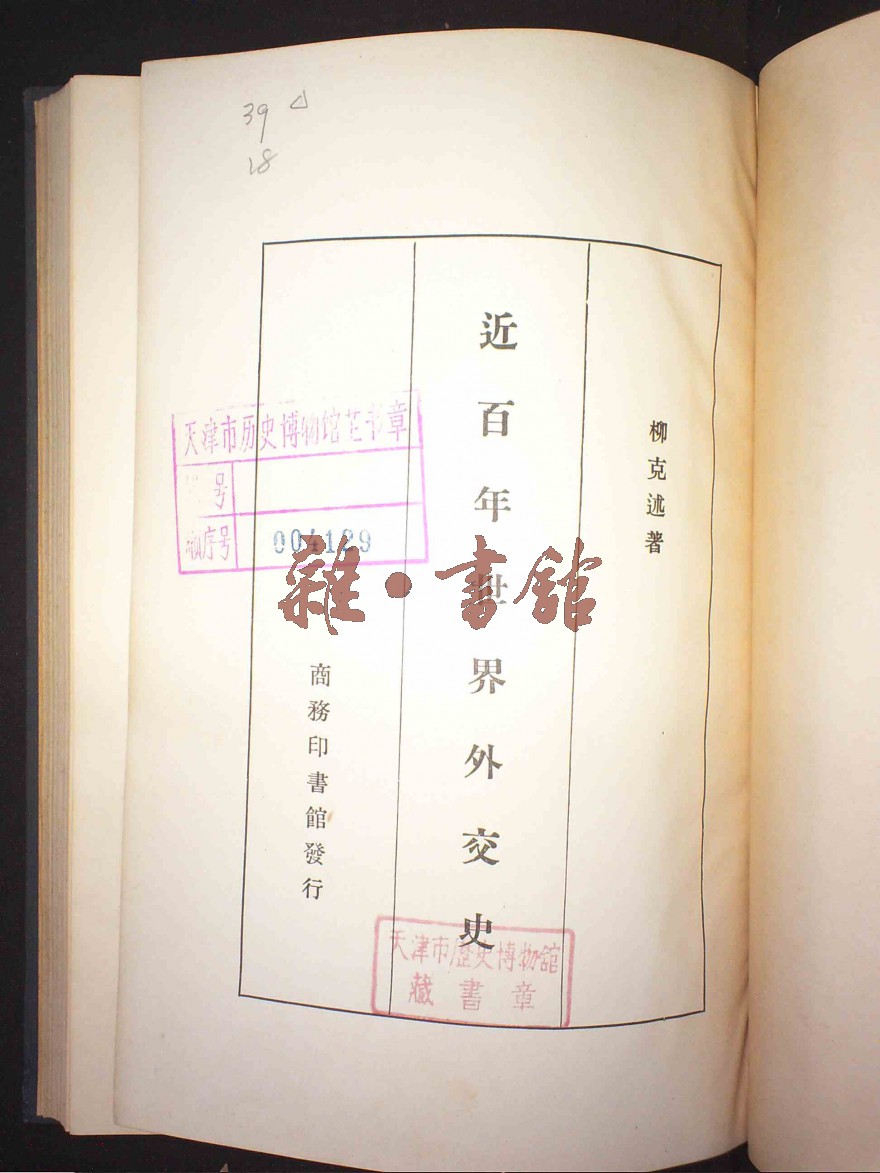 39
18
柳克述著
近百年世界外交史
商務印書館發行
天津市历史博物馆芒书章
号
顺序号
004129
雜·書館
天津市歷史博物館
藏書章